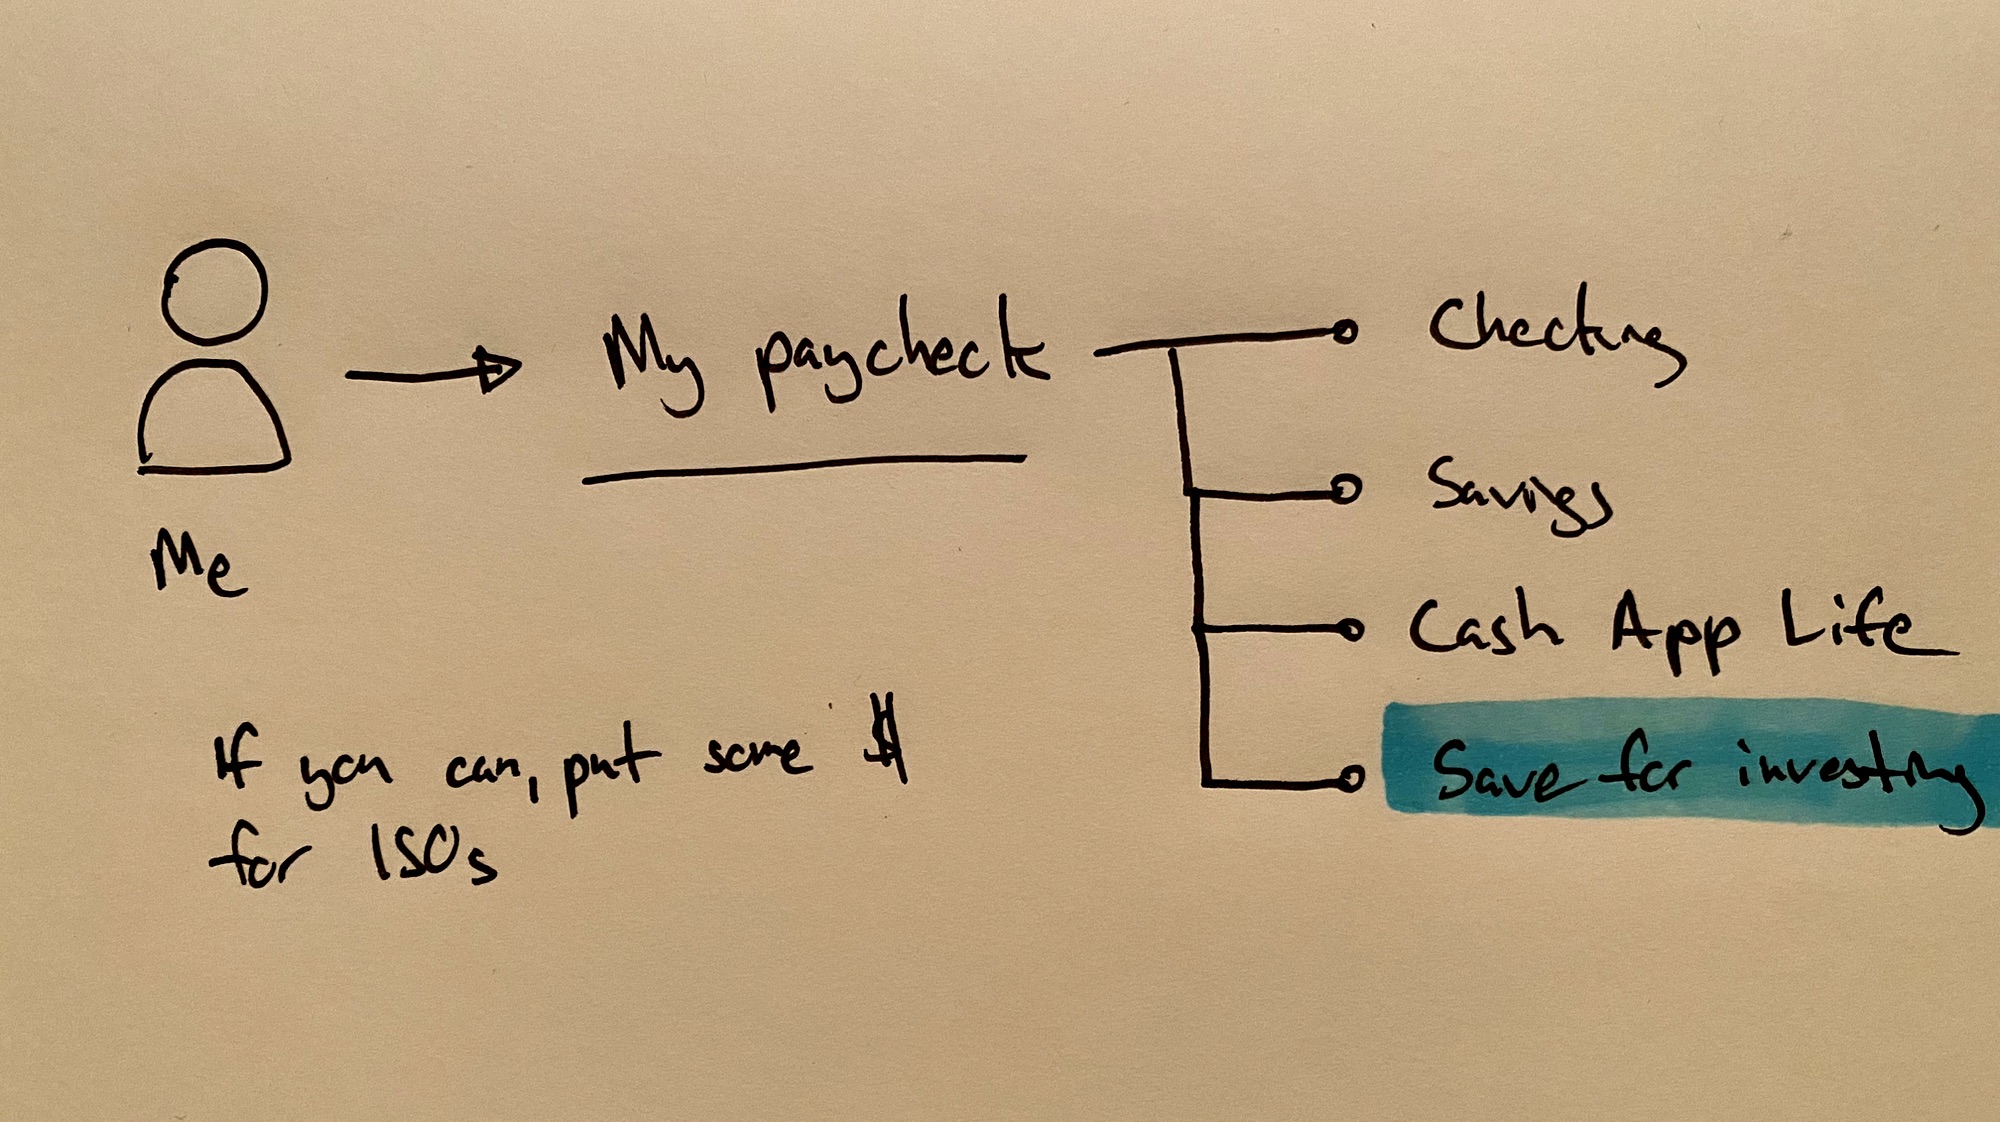 Me
My paycheck
Checking
Savings
Cash App Life
Save for investing
If you can, put some $
for ISOs